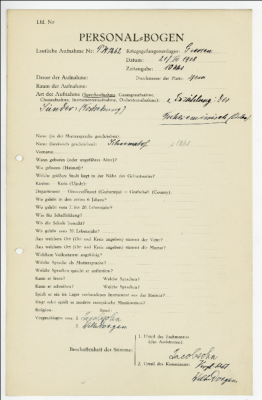 Lfd. Nr
PERSONAL=BOGEN
Lautliche Aufnahme Nr.: PK1262 Kriegsgefangenenlager: Giessen
Datum: 1918
Zeitangabe:
Dauer der Aufnahme: Durchmesser der Platte:
Raum der Aufnahme:
Art der Aufnahme (Sprechaufnahme, Gesangsaufnahme, Erzählung: Der
Choraufnahme, Instrumentenaufnahme, Orchesteraufnahme):
Sünder
Name (in der Muttersprache geschrieben):
Name (lateinisch geschrieben):
Vorname:
Wann geboren (oder ungefähres Alter)?
Wo geboren (Heimat)?
Welche größere Stadt liegt in der Nähe des Geburtsortes?
Kanton - Kreis (Ujedz):
Department - Gouvernement (Gubernija) - Grafschaft (County):
Wo gelebt in den ersten 6 Jahren?
Wo gelebt vom 7. bis 20. Lebensjahr?
Was für Schulbildung?
Wo die Schule besucht?
Wo gelebt vom 20. Lebensjahr?
Aus welchem Ort (Ort und Kreis angeben) stammt der Vater?
Aus welchem Ort (Ort und Kreis angeben) stammt die Mutter?
Welchem Volksstamm angehörig?
Welche Sprache als Muttersprache?
Welche Sprachen spricht er außerdem?
Kann er lesen? Welche Sprachen?
Kann er schreiben? Welche Sprachen?
Spielt er ein im Lager vorhandenes Instrument aus der Heimat?
Singt oder spielt er modern europäische Musikweisen?
Religion: Beruf:
Vorgeschlagen von: 1. Jacobsohn
2. Doegen
Beschaffenheit der Stimme:
1. Urteil des Fachmannes
(des Assistenten):
Jacobsohn
2. Urteil des Kommissars:
Doegen